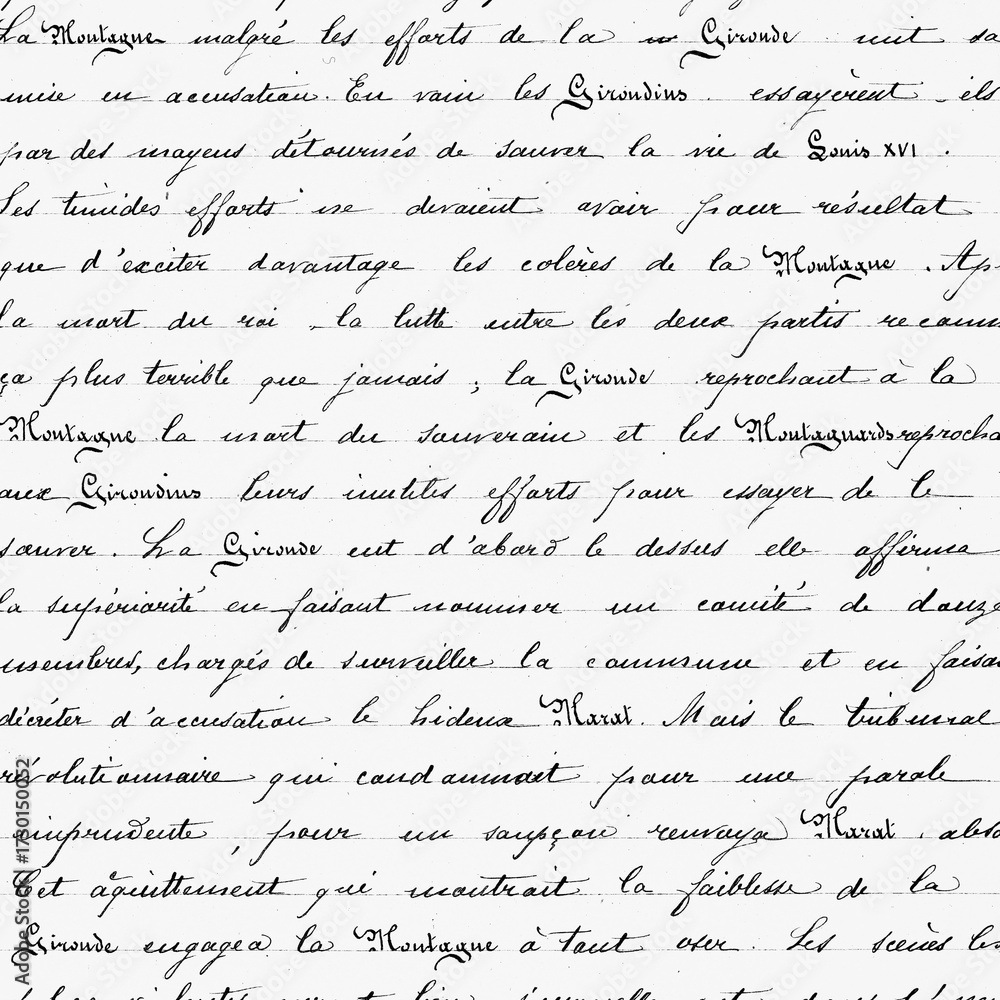 La Montagne malgré les efforts de la Gironde mit sa
mise en accusation. En vain les Girondins essayèrent ils
par des moyens détournés de sauver la vie de Louis XVI.
Ses timides efforts ne devaient avoir pour résultat
que d'exciter davantage les colères de la Montagne. Ap
la mort du roi la lutte entre les deux partis recom
ça plus terrible que jamais; la Gironde reprochant à la
Montagne la mort du souverain et les Montagnards reprocha
aux Girondins leurs inutiles efforts pour essayer de le
sauver. La Gironde eut d'abord le dessus elle affirma
la supériorité en faisant nommer un comité de douze
membres, chargés de surveiller la commune et en faisa
décréter d'accusation le hideux Marat. Mais le tribunal
révolutionnaire qui condamnait pour une parole
imprudente, pour un soupçon renvoya Marat abso
Cet aquittement qui montrait la faiblesse de la
Gironde engagea la Montagne à tout oser. Les scènes les
Adobe Stock | #1730150052